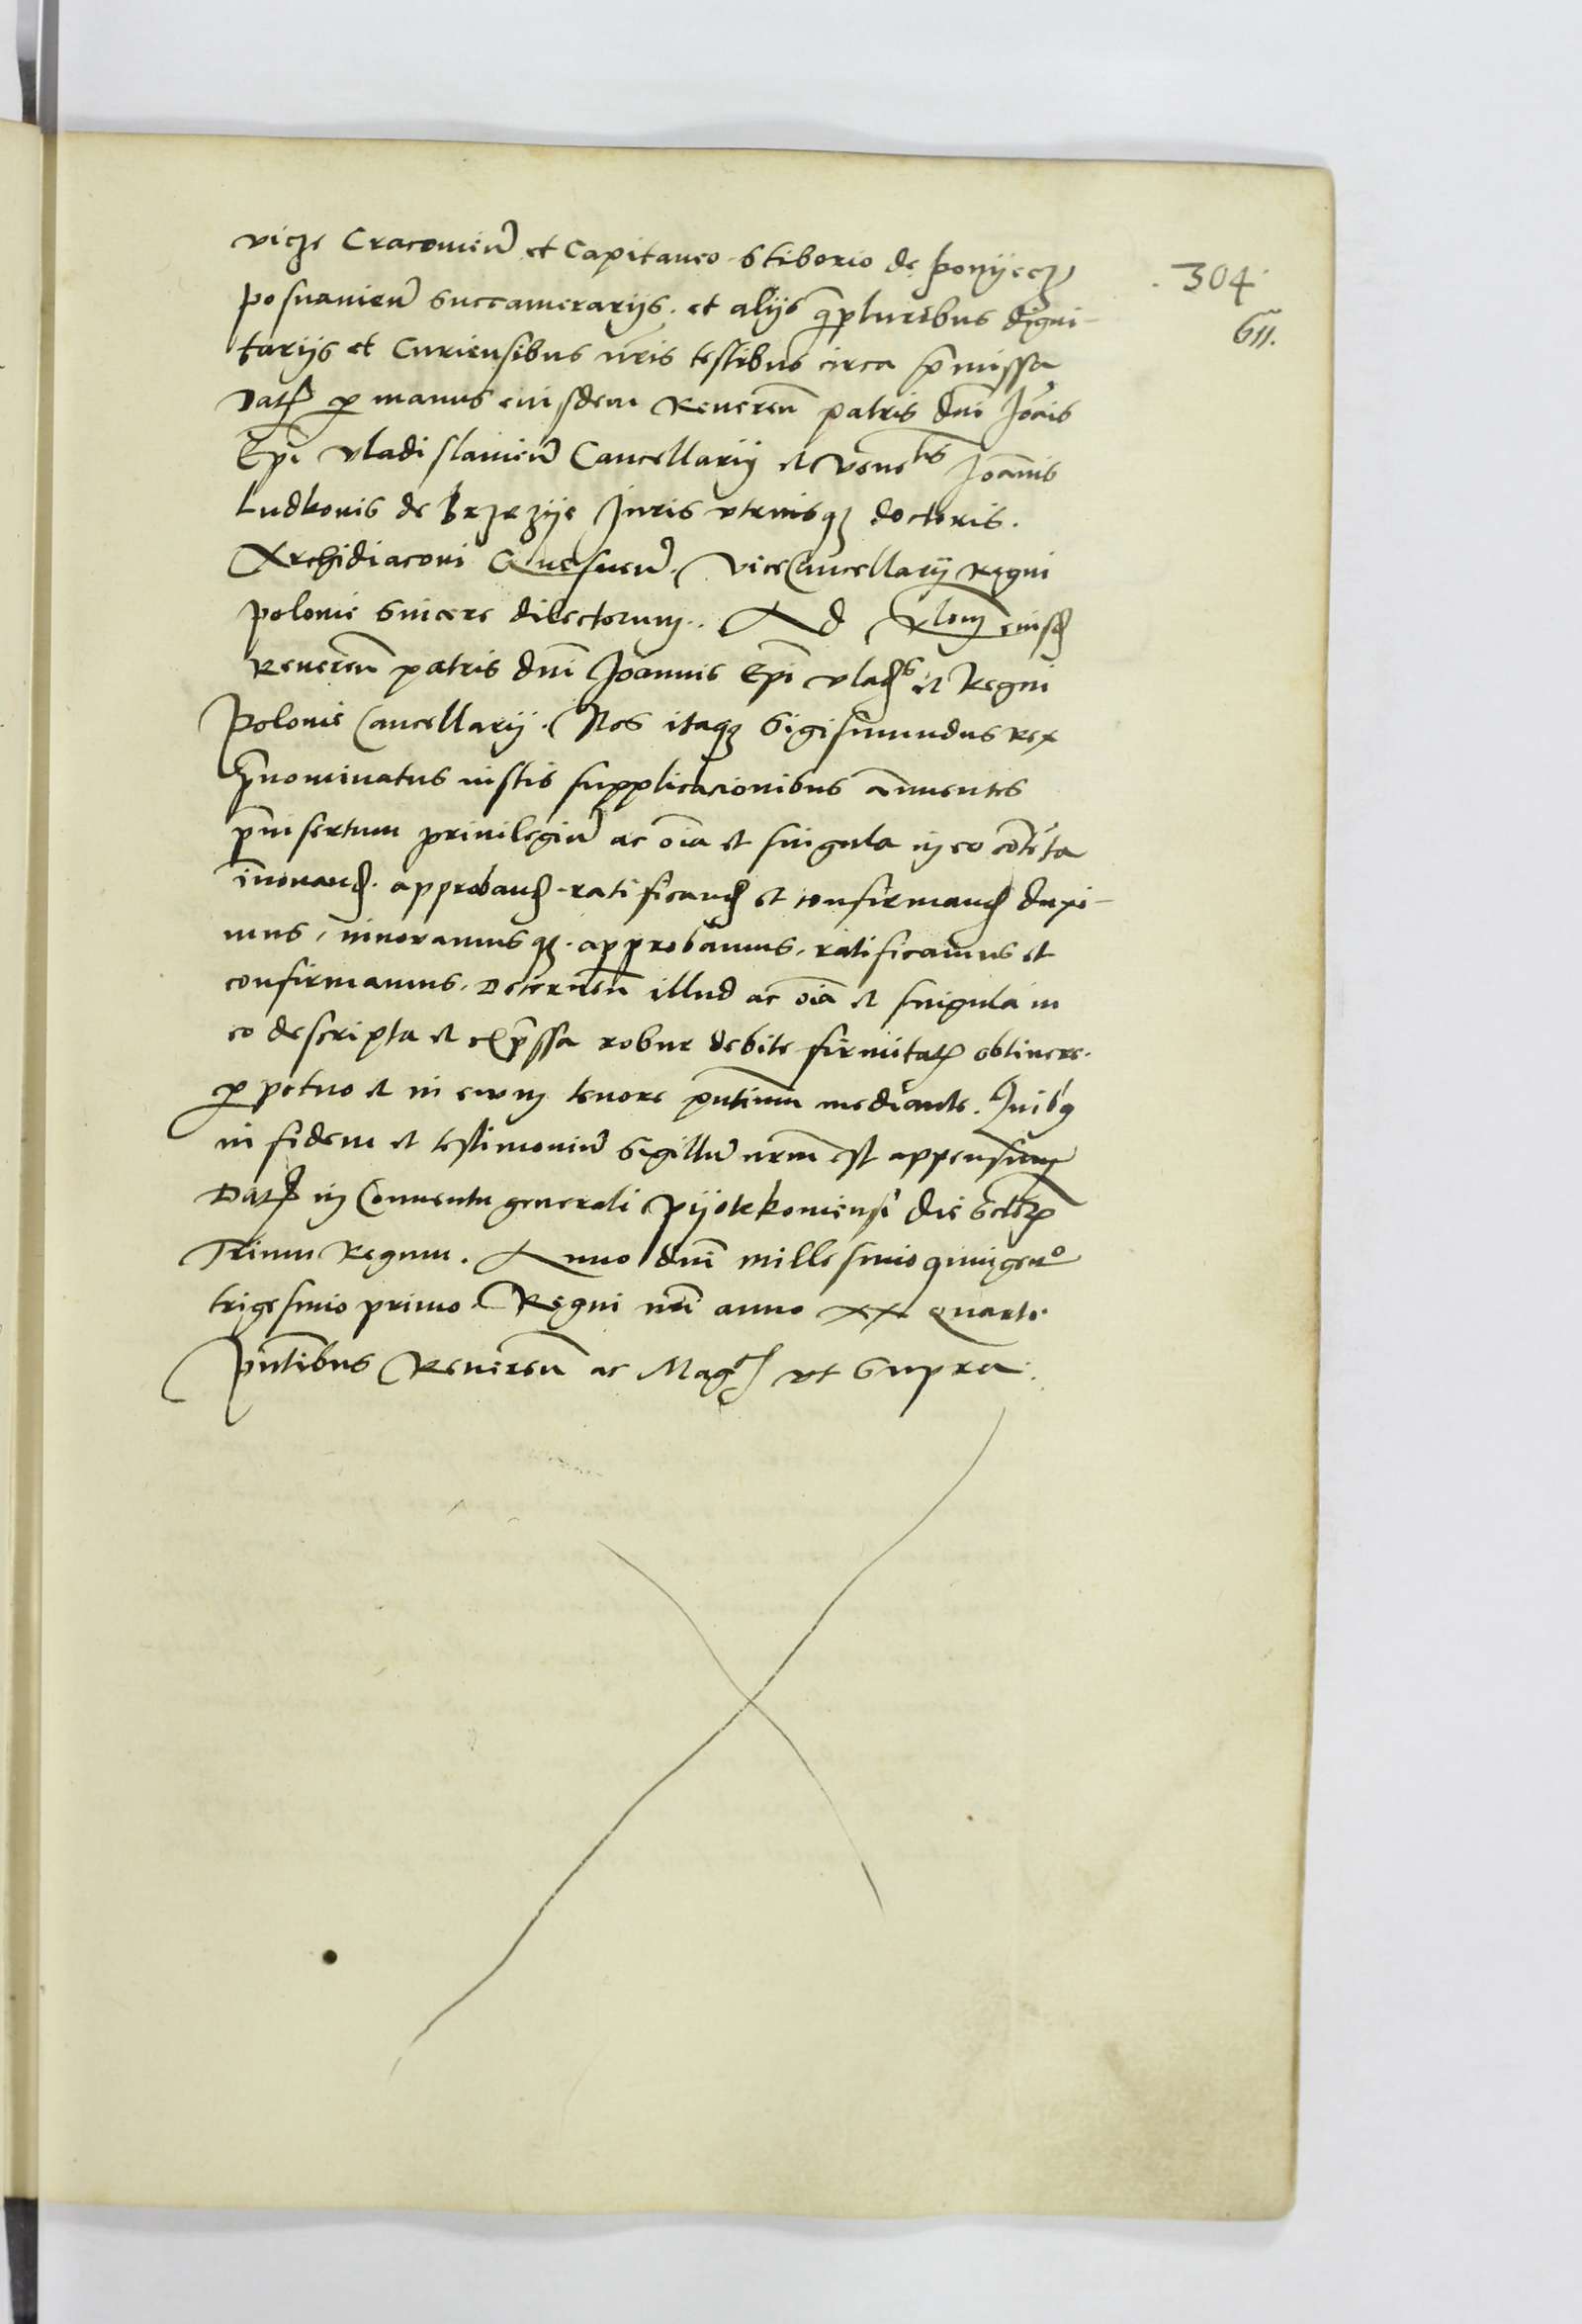 vicze Cracovien̄ et Capitaneo Stiborio de Ponyecz
304
Posnanien̄ Succamerarijs. et alijs q̄pluribus digni-
611.
tarijs et Curiensibus nr̄is testibus circa p̄missa
Dat̄ per manus eiusdem Reueren̄ patris dnī Joānis
Epī Vladislauien̄ Cancellarij et Venelis Joānnis
Ludkonis de Brzezije Juris vtriusqz doctoris.
Archidiaconi Gnesnen̄. Vicecancellarij Regni
Polonie Sincere dilectorum. Ad rlom eiusd
Reueren̄ patris dnī Joannis Epī Vlad et Regni
Polonie Cancellarij. Nos itaqz Sigismundus Rex
p̄nominatus iustis supplicacionibus annuentes
p̄insertum priuilegiū ac oīa et singula in eo cōtēta
inouand. approband. ratificand et confirmand duxi-
mus, innouamusqz. approbamus. ratificamus et
confirmamus. Decernen̄ illud ac oīa et singula in
eo descripta et exp̄ssa robur debite firmitatis obtinere.
perpetuo et in ewm tenore pn̄tium mediante. Quibus
in fidem et testimoniū Sigillū nrm̄ est appensum
Dat̄ in Conuentu generali Pijotrkoviensi die Sctor
Trium Regum. Anno dnī millesimo quingen̄o
trigesimo primo. Regni nr̄i anno xx quarto
pn̄tibus Reueren̄ ac Mag ut Supra.